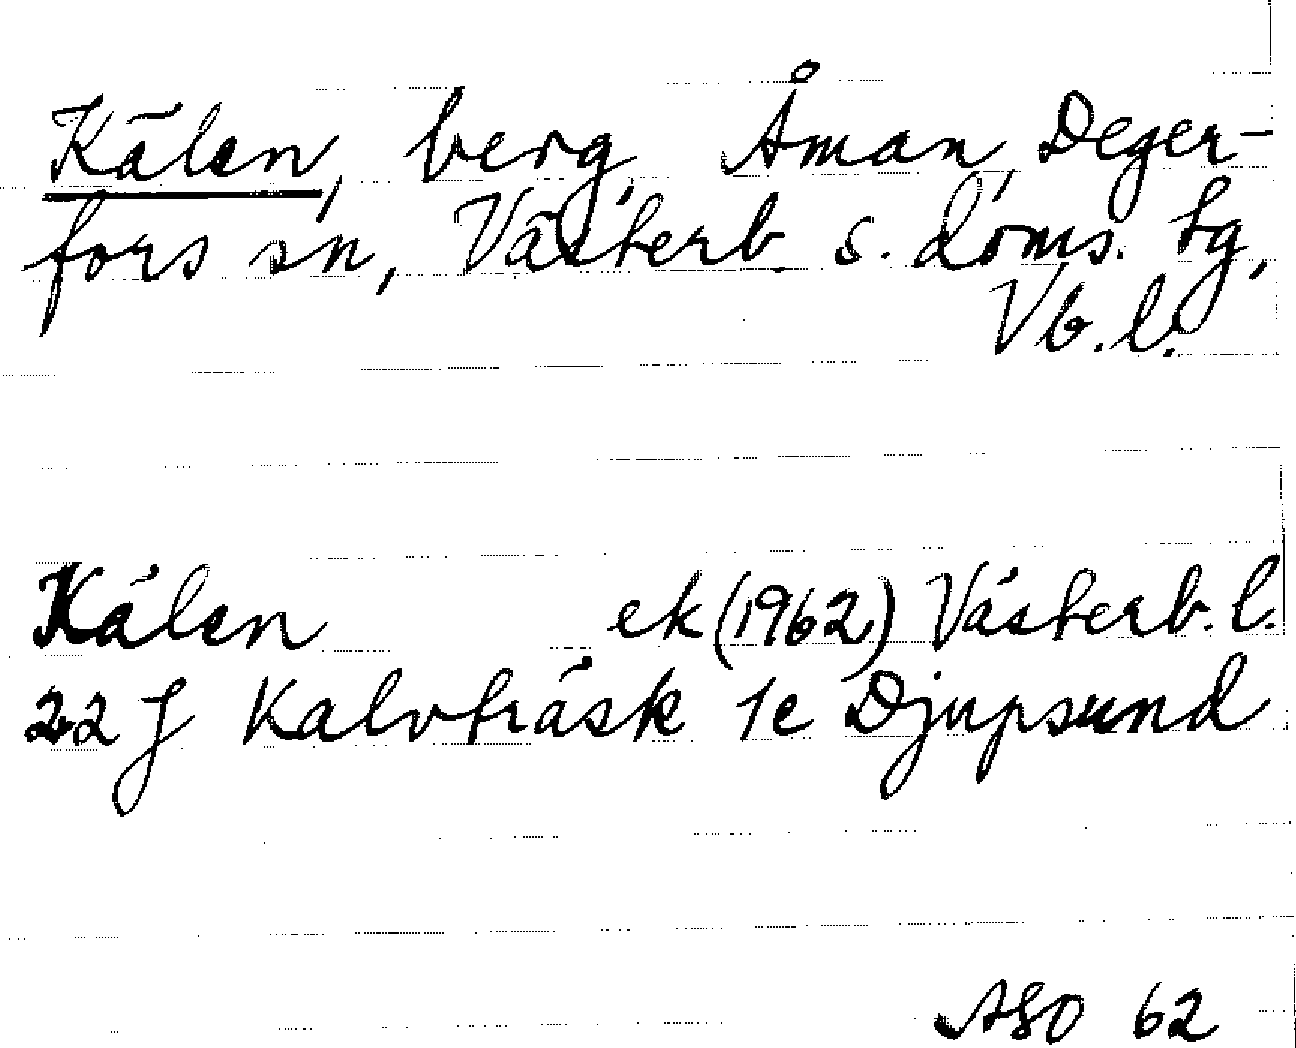 Kälen, berg, Åman, Deger-
fors sn, Västerb. s. doms. tg,
Vb. l.
Kälen ek (1962) Västerb. l.
22 J Kalvträsk 1e Djupsund
62